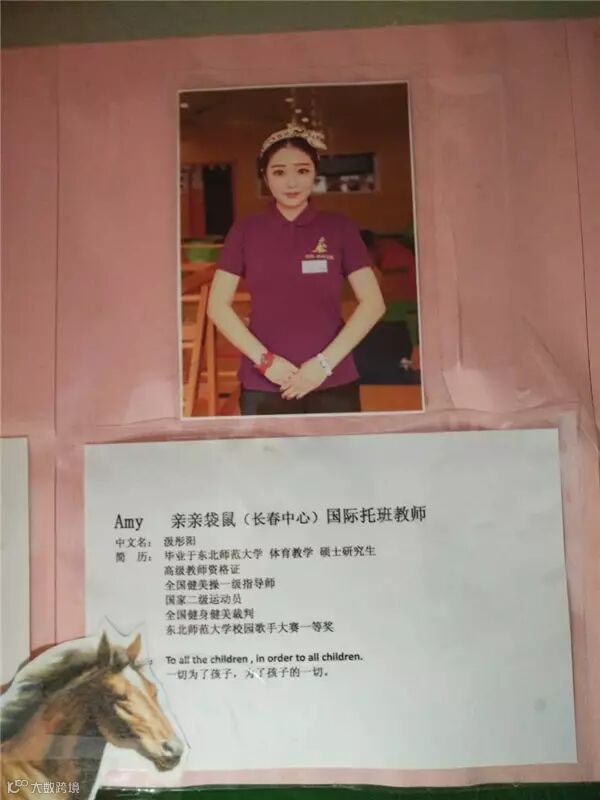 Amy 亲亲袋鼠（长春中心）国际托班教师
中文名： 汲彤阳
简 历： 毕业于东北师范大学 体育教学 硕士研究生
高级教师资格证
全国健美操一级指导师
国家二级运动员
全国健身健美裁判
东北师范大学校园歌手大赛一等奖
To all the children , in order to all children.
一切为了孩子，为了孩子的一切。
大数跨境